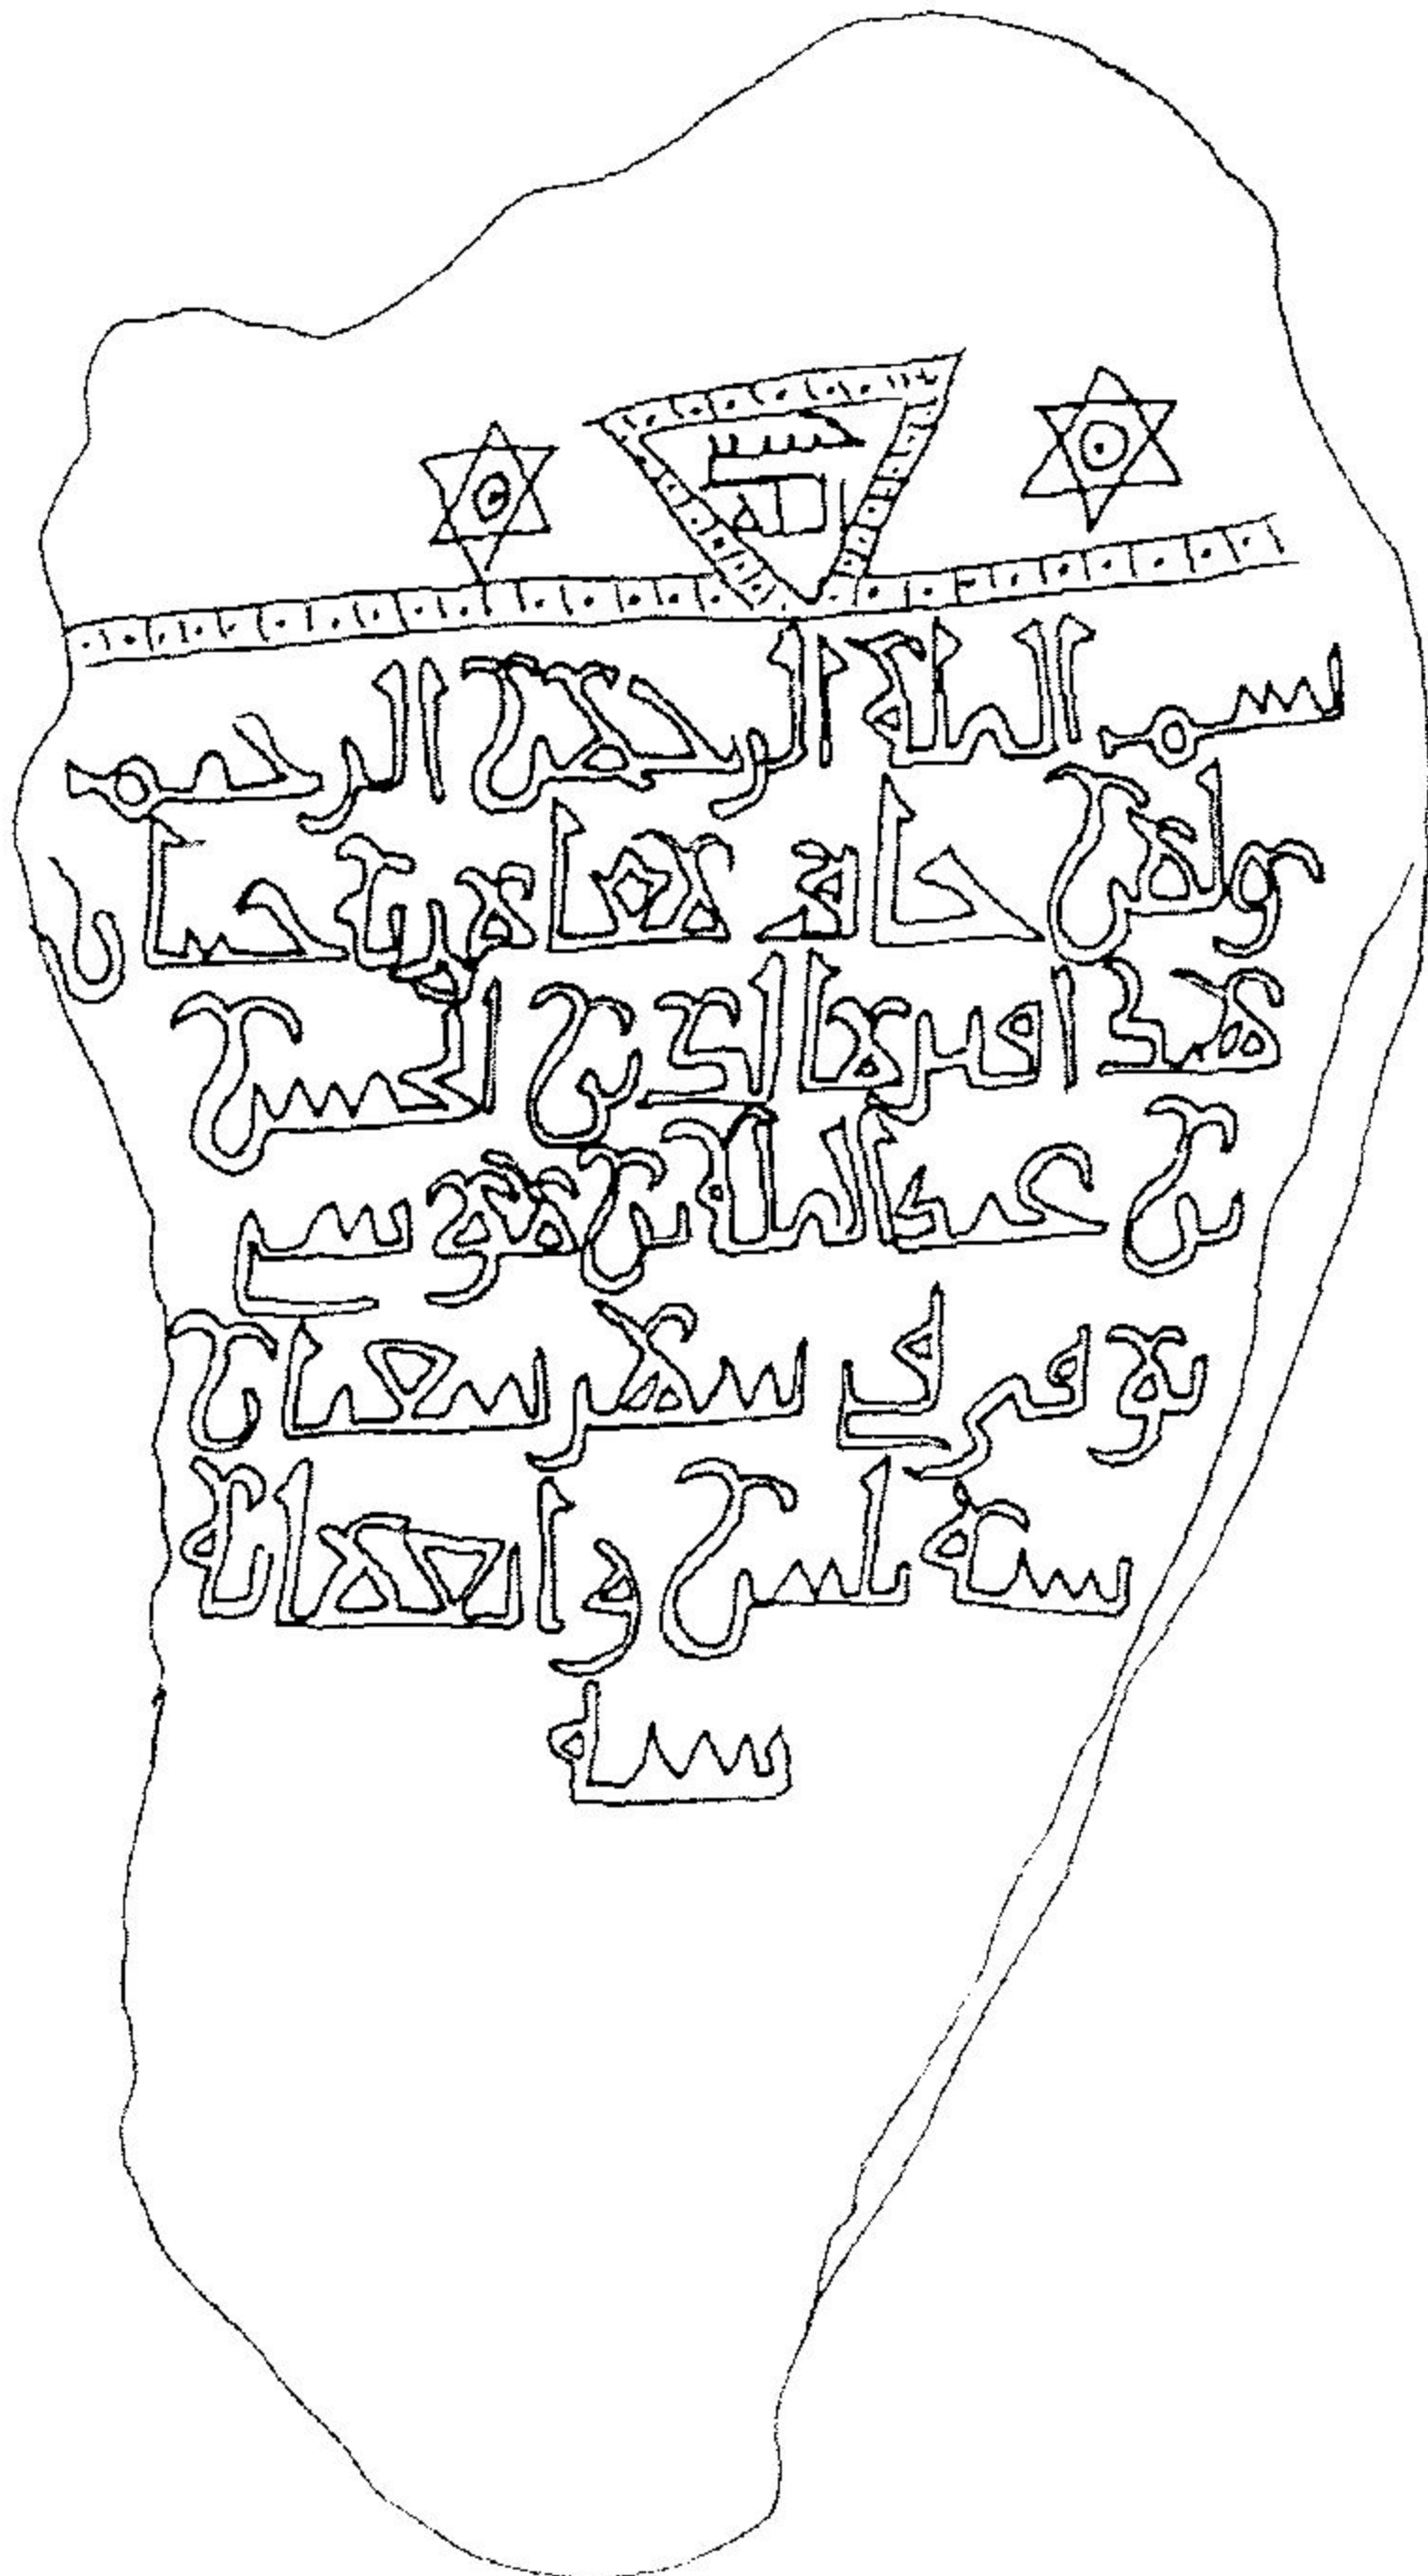 بسم الله الرحمن الرحيم
ولمن خاف مقام ربه جنتان
هذا قبر الدين الحسن
بن عبدالله بن موسى
توفي في شهر شعبان
سنة ثلثين واربعمائة
سنة